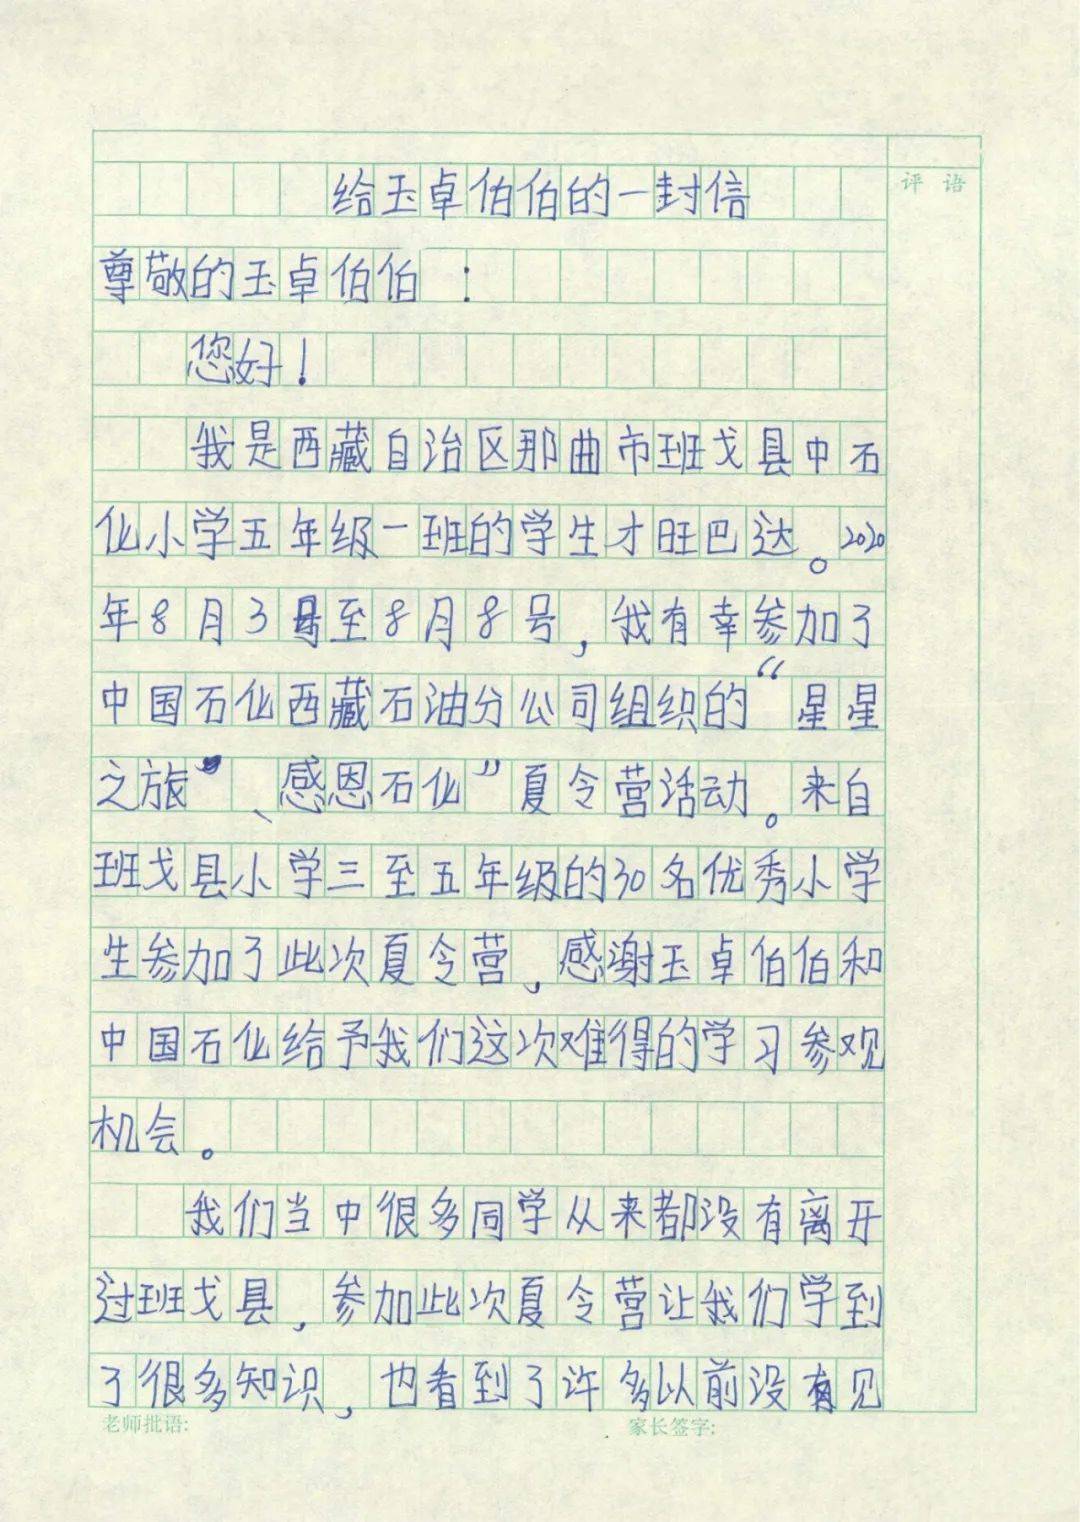 给玉卓伯伯的一封信
评 语
尊敬的玉卓伯伯：
您好！
我是西藏自治区那曲市班戈县中石
化小学五年级一班的学生才旺巴达。2020
年8月3号至8月8号，我有幸参加了
中国石化西藏石油分公司组织的“星星
之旅”、感恩石化”夏令营活动。来自
班戈县小学三至五年级的30名优秀小学
生参加了此次夏令营，感谢玉卓伯伯和
中国石化给予我们这次难得的学习参观
机会。
我们当中很多同学从来都没有离开
过班戈县，参加此次夏令营让我们学到
了很多知识，也看到了许多以前没有见
老师批语: 家长签字: